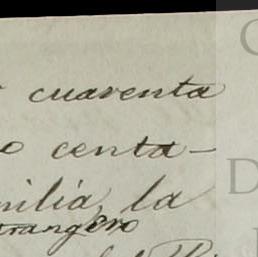 cuarenta
o centa-
milia, la
trangero